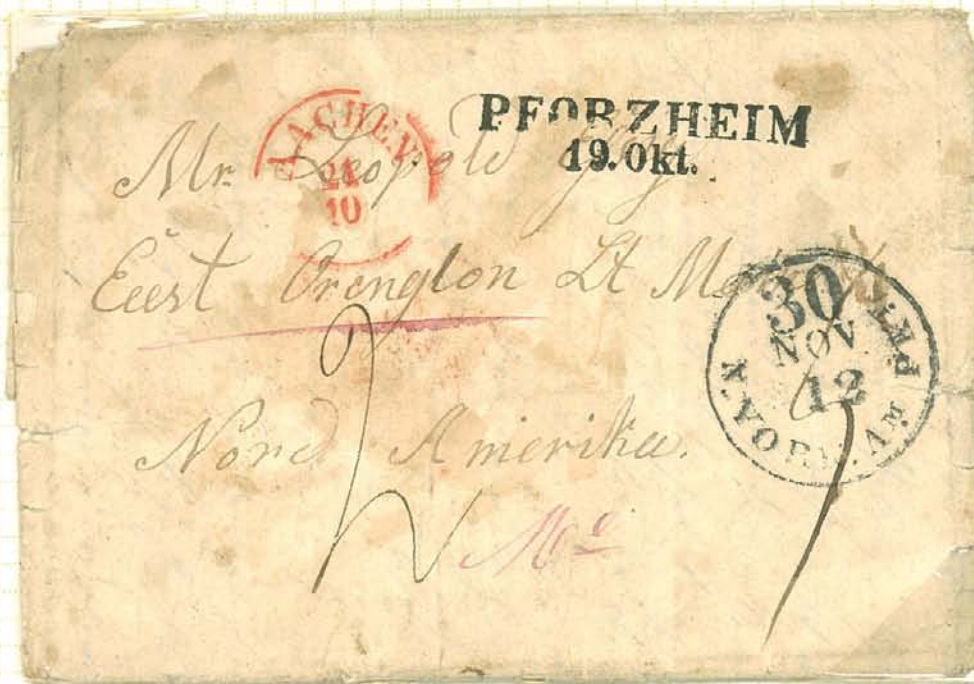 PFORZHEIM
19. Okt.
AACHEN
21
10
Mr. Leopold
Eeest Orenglon Lt
30
NOV
12
N. YORK. AM PKT
Nord Amerika.
Me